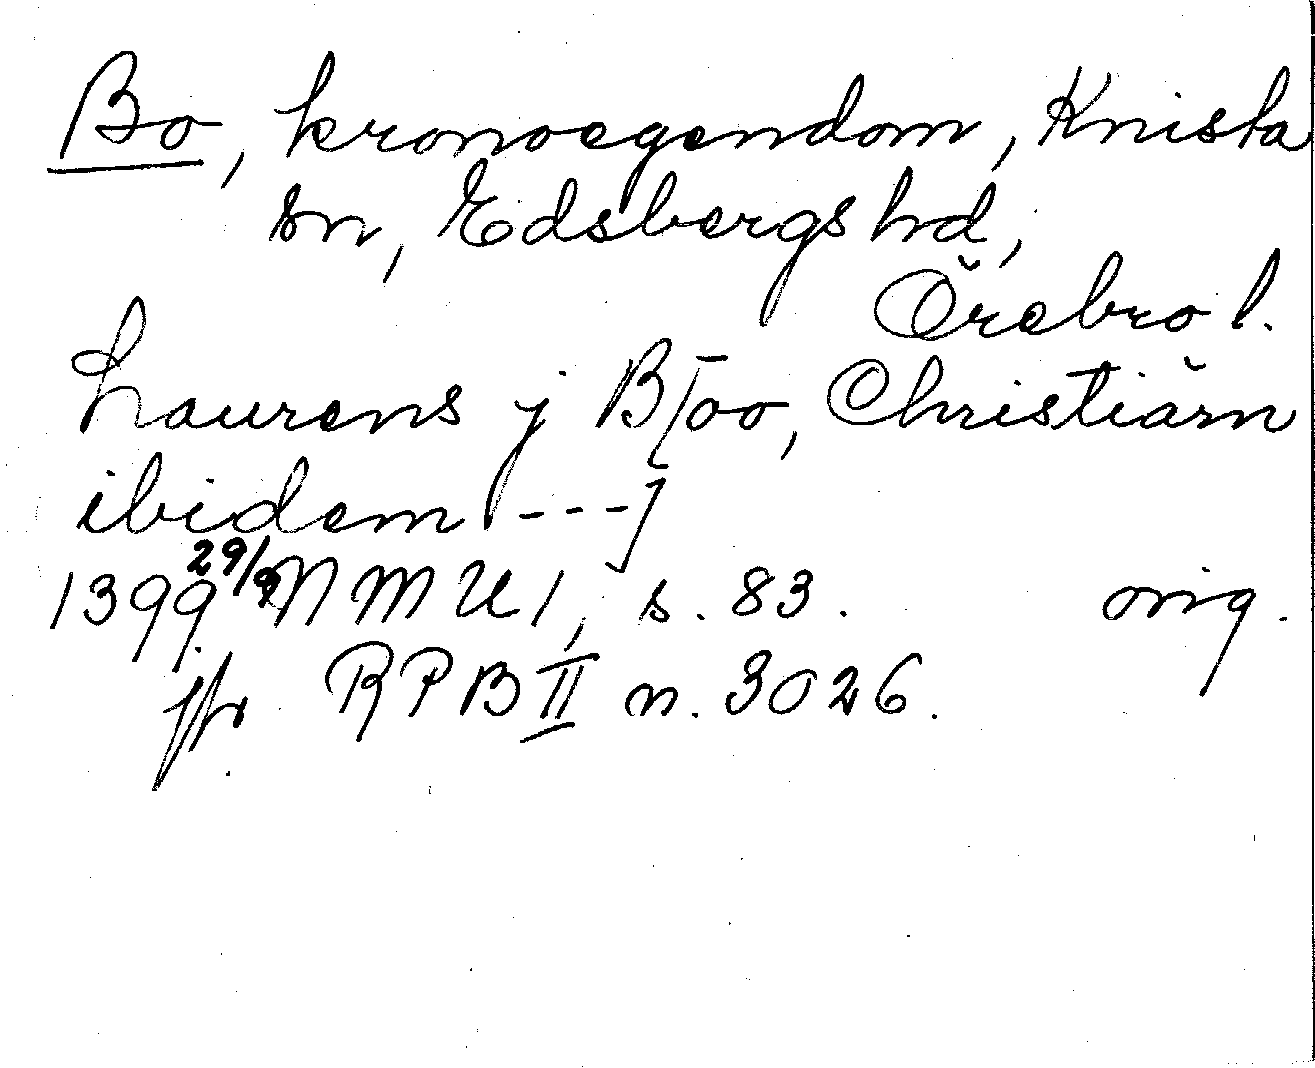 Bo, kronoegendom, Knista
sn, Edsbergs hd,
Örebro l.
Laurens j B[oo, Christiārn
ibidem ---]
1399 29/9 NMU 1, s. 83. orig.
jfr. RPB II n. 3026.